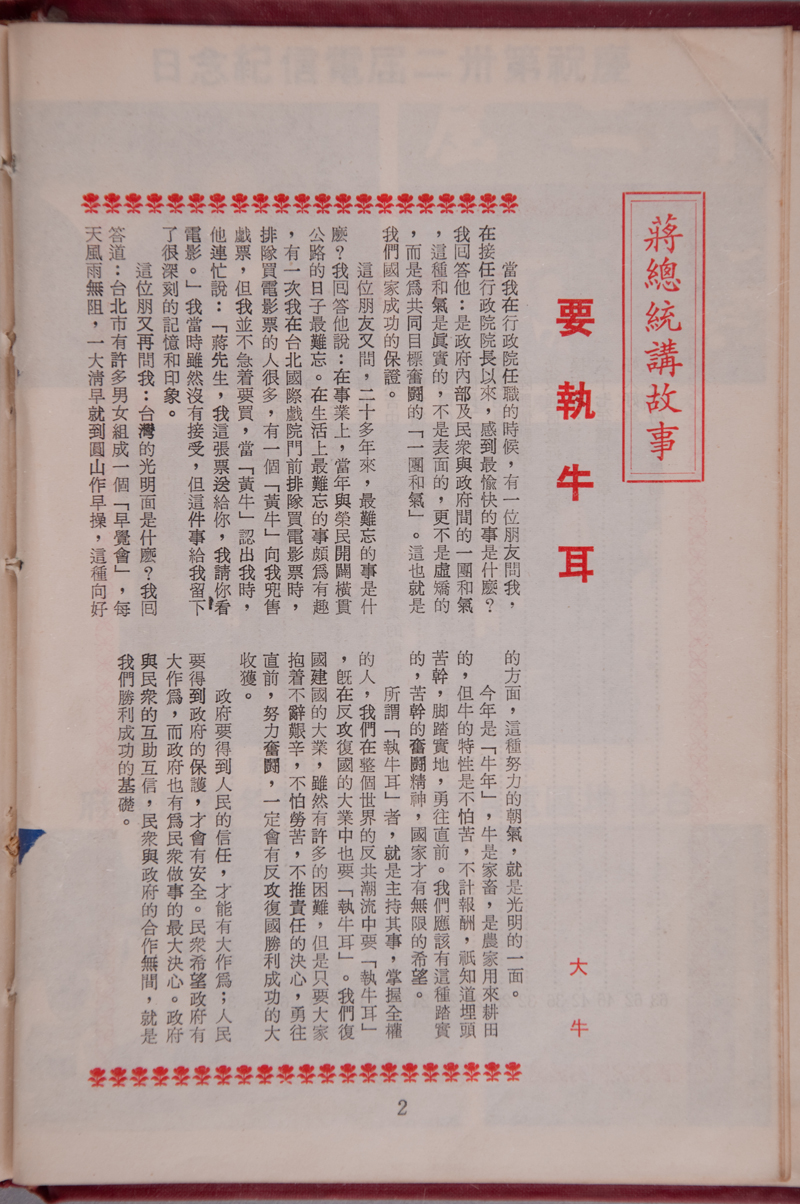 蔣總統講故事
要執牛耳
大牛
當我在行政院任職的時候，有一位朋友問我，
在接任行政院院長以來，感到最愉快的事是什麽？
我回答他：是政府內部及民衆與政府間的一團和氣
，這種和氣是眞實的，不是表面的，更不是虛矯的
，而是爲共同目標奮鬪的「一團和氣」。這也就是
我們國家成功的保證。
這位朋友又問，二十多年來，最難忘的事是什
麽？我回答他說：在事業上，當年與榮民開闢橫貫
公路的日子最難忘。在生活上最難忘的事頗爲有趣
，有一次我在台北國際戲院門前排隊買電影票時，
排隊買電影票的人很多，有一個「黃牛」向我兜售
戲票，但我並不急着要買，當「黃牛」認出我時，
他連忙說：「蔣先生，我這張票送給你，我請你看
電影。」我當時雖然沒有接受，但這件事給我留下
了很深刻的記憶和印象。
這位朋又再問我：台灣的光明面是什麽？我回
答道：台北市有許多男女組成一個「早覺會」，每
天風雨無阻，一大淸早就到圓山作早操，這種向好
的方面，這種努力的朝氣，就是光明的一面。
今年是「牛年」，牛是家畜，是農家用來耕田
的，但牛的特性是不怕苦，不計報酬，祇知道埋頭
苦幹，脚踏實地，勇往直前。我們應該有這種踏實
的，苦幹的奮鬪精神，國家才有無限的希望。
所謂「執牛耳」者，就是主持其事，掌握全權
的人，我們在整個世界的反共潮流中要「執牛耳」
，旣在反攻復國的大業中也要「執牛耳」。我們復
國建國的大業，雖然有許多的困難，但是只要大家
抱着不辭艱辛，不怕勞苦，不推責任的決心，勇往
直前，努力奮鬪，一定會有反攻復國勝利成功的大
收獲。
政府要得到人民的信任，才能有大作爲；人民
要得到政府的保護，才會有安全。民衆希望政府有
大作爲，而政府也有爲民衆做事的最大決心。政府
與民衆的互助互信，民衆與政府的合作無間，就是
我們勝利成功的基礎。
2